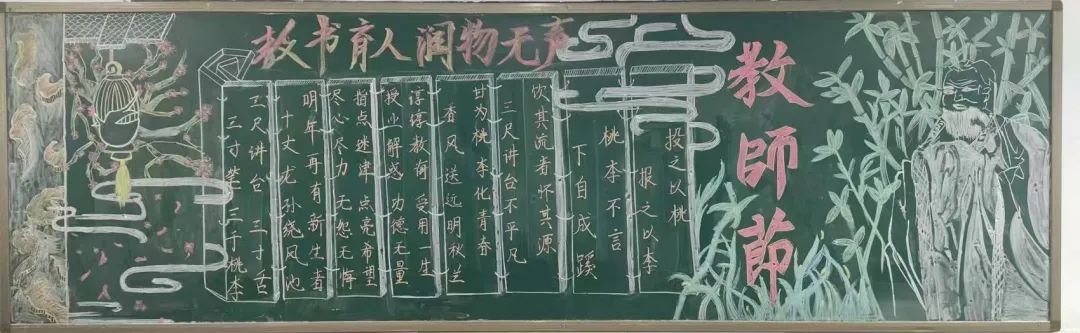 教书育人润物无声
教師節
投之以桃
报之以李
桃李不言
下自成蹊
饮其流者怀其源
三尺讲台不平凡
甘为桃李化青春
香风送远明秋兰
谆谆教诲 受用一生
授业解惑 功德无量
指点迷津 点亮希望
尽心尽力 无怨无悔
明年再有新生者
十丈龙孙绕凤池
三尺讲台 三寸舌
三寸笔 三千桃李